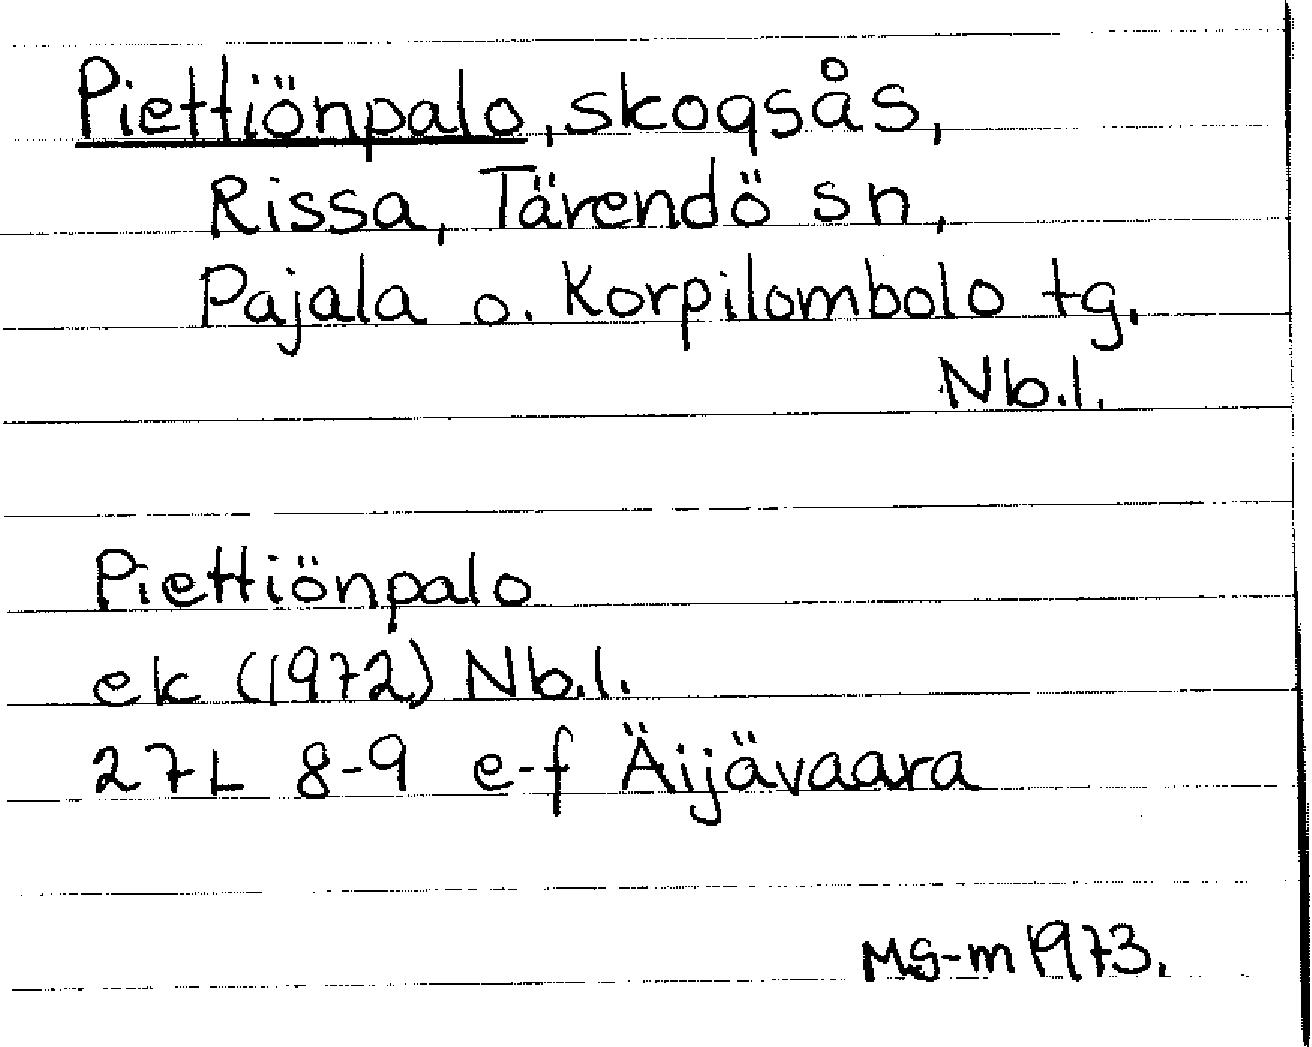 Piettiönpalo, skogsås,
Rissa, Tärendö sn,
Pajala o. Korpilombolo tg.
Nb.l.
Piettiönpalo
ek (1972) Nb.l.
27L 8-9 e-f Äijävaara
MS-m 1973.